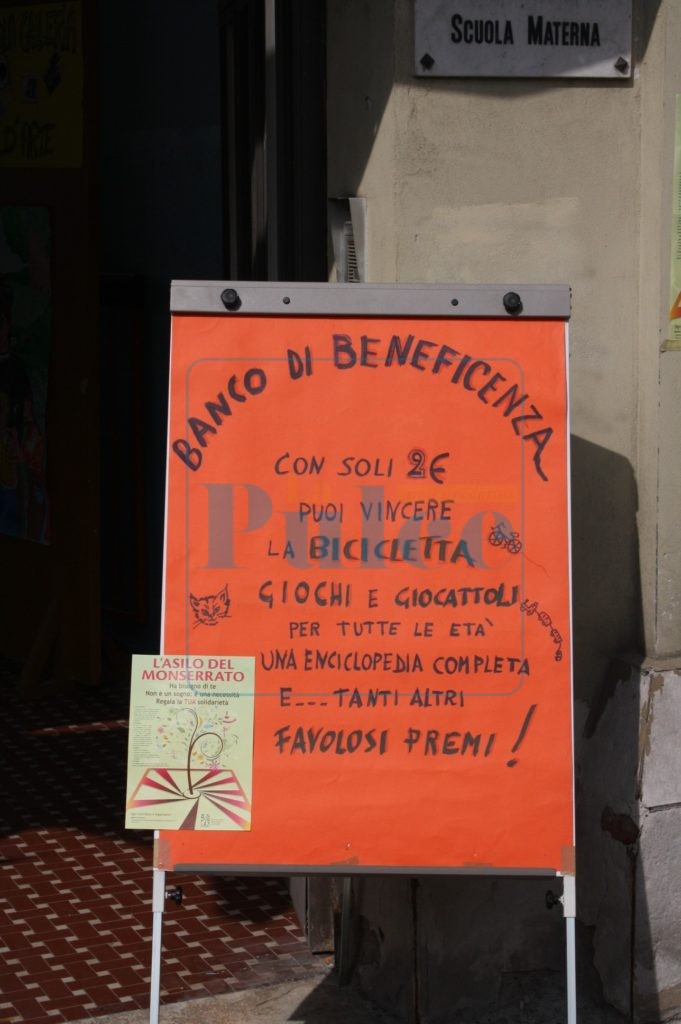 SCUOLA MATERNA
D'ARTE
BANCO DI BENEFICENZA
CON SOLI 2€
PUOI VINCERE
LA BICICLETTA
GIOCHI E GIOCATTOLI
PER TUTTE LE ETÀ
UNA ENCICLOPEDIA COMPLETA
E--- TANTI ALTRI
FAVOLOSI PREMI!
L'ASILO DEL
MONSERRATO
Ha bisogno di te
Non è un sogno: è una necessità
Regala la TUA solidarietà